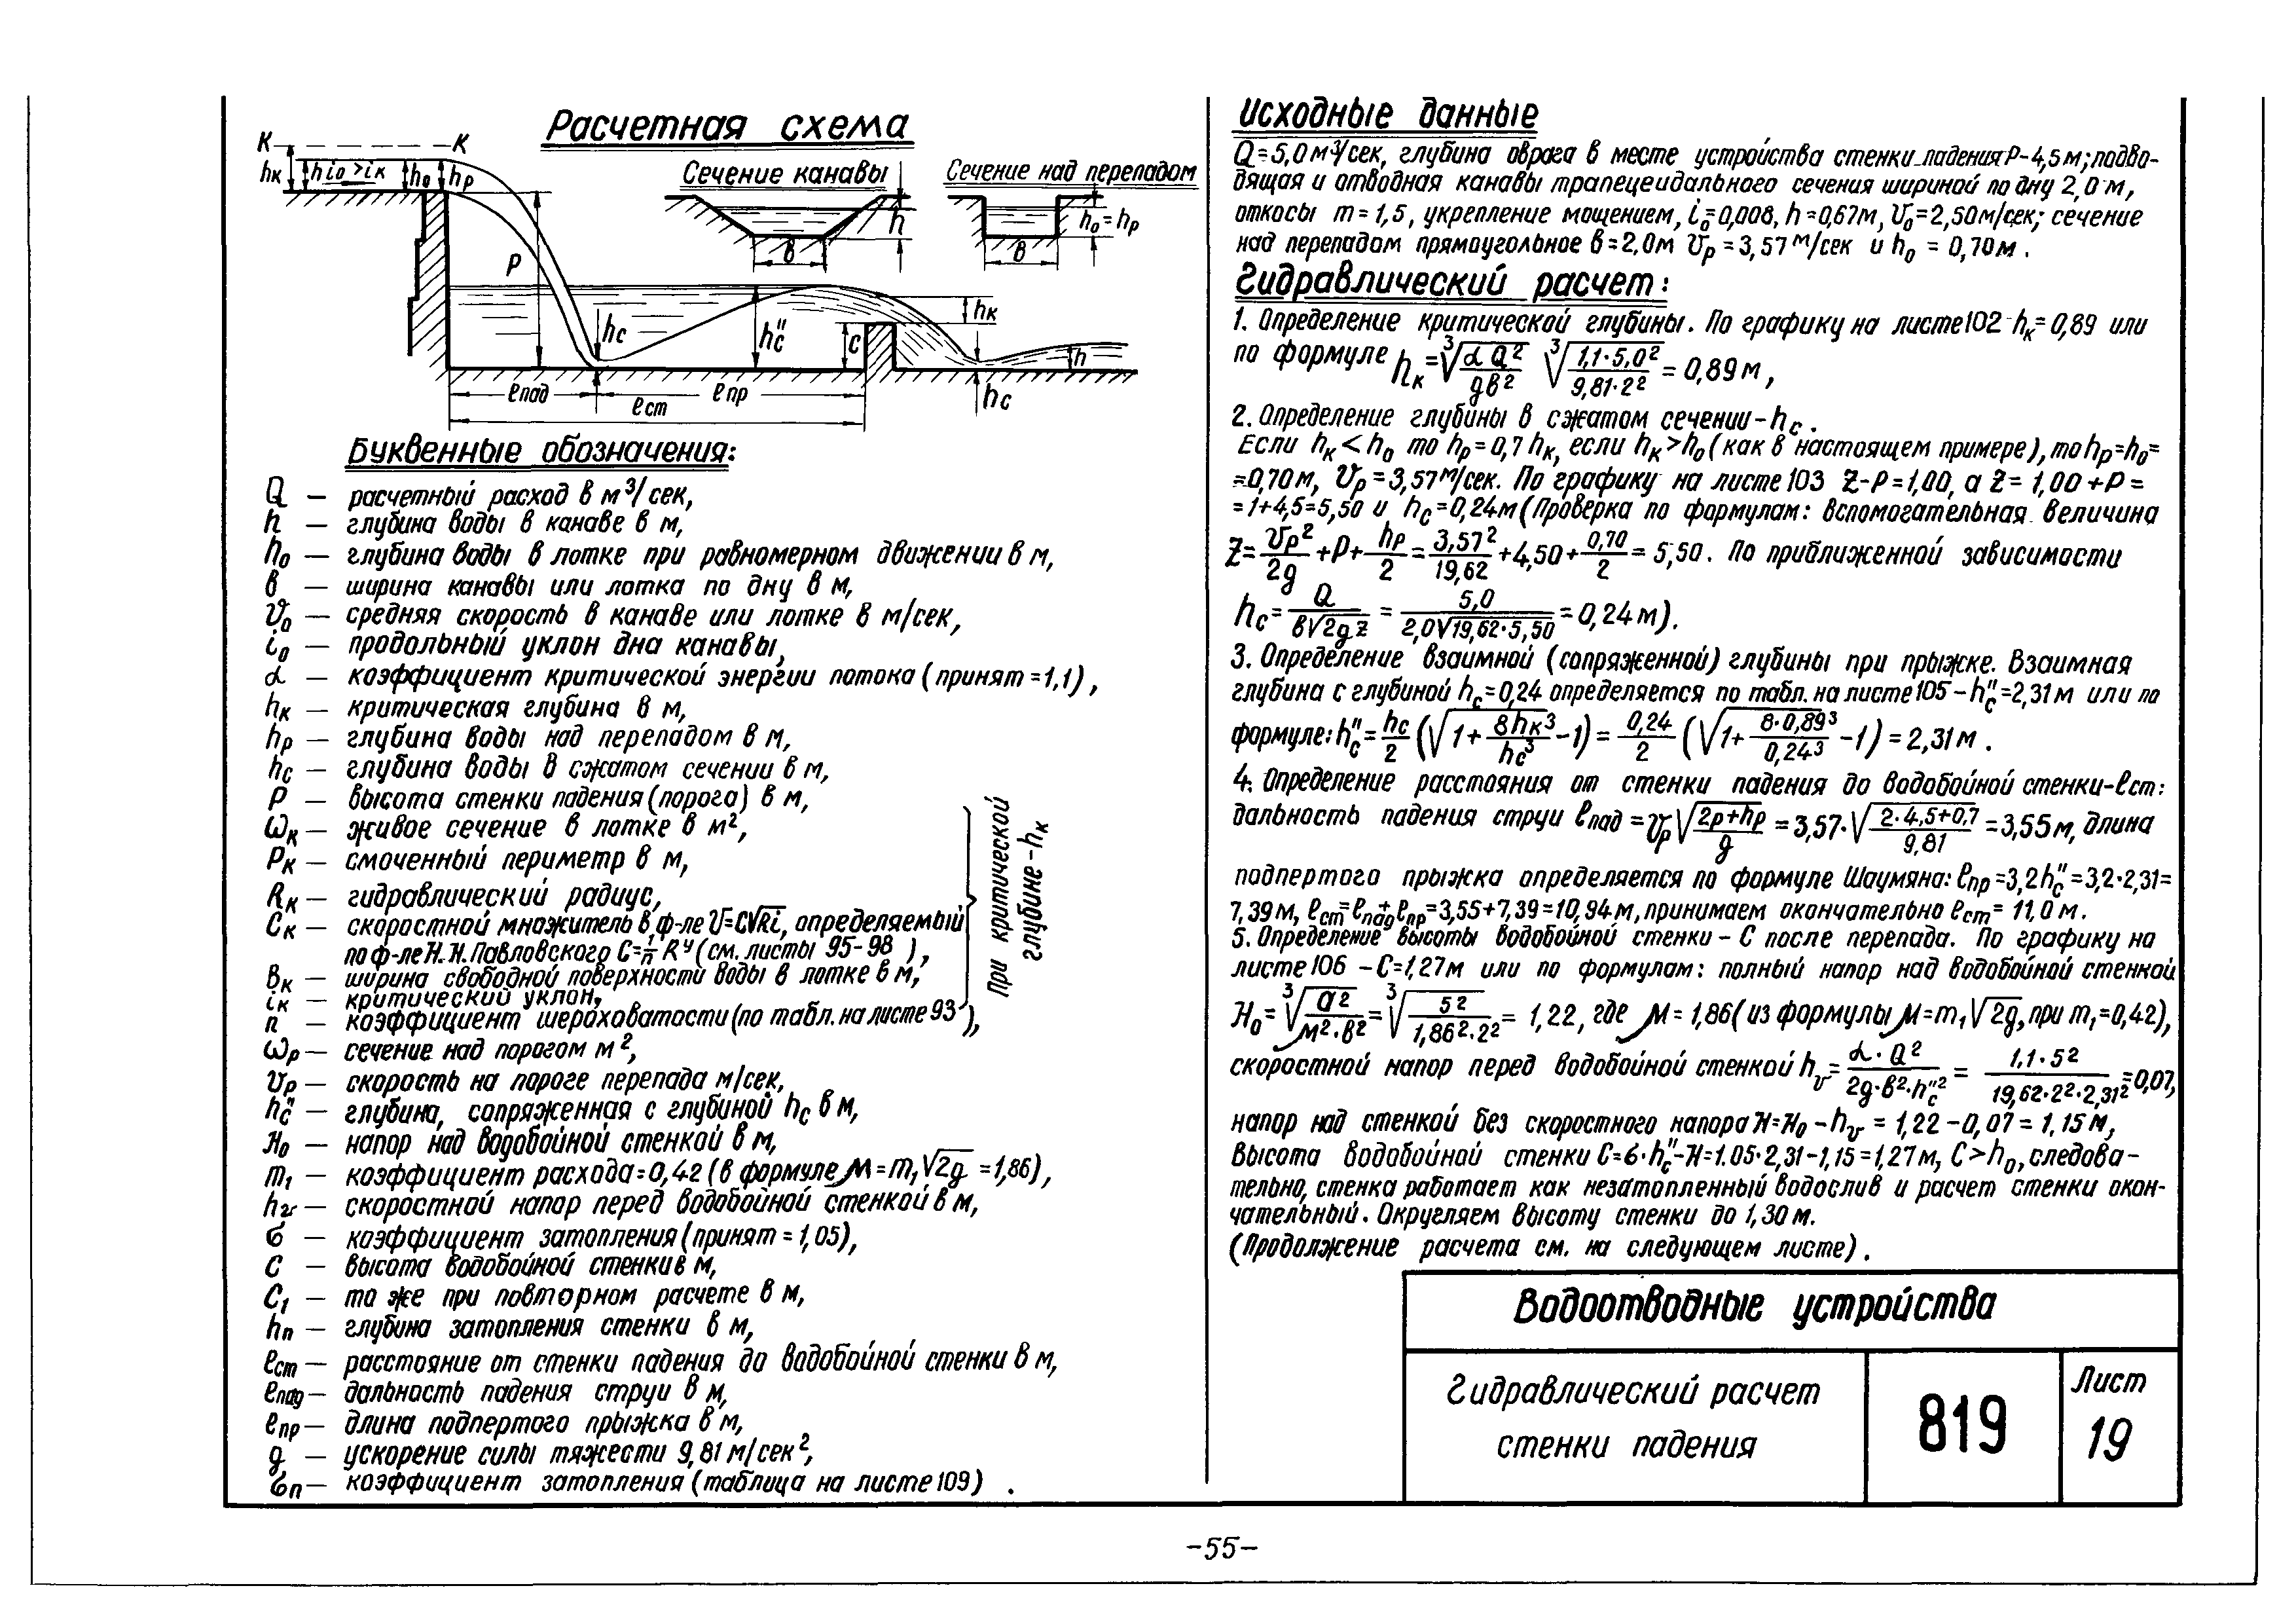 Расчетная схема
К К
hк h i₀ > iк h₀ hр
Сечение канавы Сечение над перепадом
h h₀ = hр
в в
Р
hс hс" С hк
h
ℓпад ℓпр hс
ℓст
Буквенные обозначения:
Q – расчетный расход в м³/сек,
h – глубина воды в канаве в м,
h₀ – глубина воды в лотке при равномерном движении в м,
в – ширина канавы или лотка по дну в м,
V₀ – средняя скорость в канаве или лотке в м/сек,
i₀ – продольный уклон дна канавы,
α – коэффициент критической энергии потока (принят =1,1),
hк – критическая глубина в м,
hр – глубина воды над перепадом в м,
hс – глубина воды в сжатом сечении в м,
Р – высота стенки падения (порога) в м,
ωк – живое сечение в лотке в м²,
Рк – смоченный периметр в м,
Rк – гидравлический радиус,
Ск – скоростной множитель в ф-ле V=C√Ri, определяемый
по ф-ле Н.Н. Павловского С=1/n Rʸ (см. листы 95-98 ),
Вк – ширина свободной поверхности воды в лотке в м,
iк – критический уклон,
При критической
глубине - hк
n – коэффициент шероховатости (по табл. на листе 93 ),
ωр – сечение над порогом м²,
Vр – скорость на пороге перепада м/сек,
hс" – глубина, сопряженная с глубиной hс в м,
H₀ – напор над водобойной стенкой в м,
m₁ – коэффициент расхода=0,42 (в формуле М=m₁√2g =1,86),
hv – скоростной напор перед водобойной стенкой в м,
б – коэффициент затопления (принят = 1,05),
С – высота водобойной стенки в м,
С₁ – то же при повторном расчете в м,
hп – глубина затопления стенки в м,
ℓст – расстояние от стенки падения до водобойной стенки в м,
ℓпад – дальность падения струи в м,
ℓпр – длина подпертого прыжка в м,
g – ускорение силы тяжести 9,81 м/сек²,
бп – коэффициент затопления (таблица на листе 109) .
Исходные данные
Q=5,0 м³/сек, глубина оврага в месте устройства стенки падения Р-4,5 м; подво-
дящая и отводная канавы трапецеидального сечения шириной по дну 2,0 м,
откосы m=1,5, укрепление мощением, i₀=0,008, h=0,67м, V₀=2,50м/сек; сечение
над перепадом прямоугольное в=2,0м Vр =3,57 м/сек и h₀ = 0,70м .
Гидравлический расчет:
1. Определение критической глубины. По графику на листе 102 hк=0,89 или
по формуле hк=³√(α Q²/gв²) ³√(1,1·5,0²/9,81·2²) = 0,89м ,
2. Определение глубины в сжатом сечении - hс .
Если hк < h₀ то hр=0,7 hк, если hк > h₀ (как в настоящем примере), то hр=h₀=
=0,70м, Vр =3,57м/сек. По графику на листе 103 Z-Р=1,00, а Z= 1,00+Р=
=1+4,5=5,50 и hс=0,24м (Проверка по формулам: вспомогательная величина
Z=Vр²/2g+Р+hр/2=3,57²/19,62+4,50+0,70/2= 5,50. По приближенной зависимости
hс= Q/в√2gZ = 5,0/2,0√19,62·5,50 =0,24м).
3. Определение взаимной (сопряженной) глубины при прыжке. Взаимная
глубина с глубиной hс=0,24 определяется по табл. на листе 105 – hс"=2,31м или по
формуле: hс"= hс/2 (√(1+8hк³/hс³)-1) = 0,24/2 (√(1+8·0,89³/0,24³)-1) = 2,31м .
4. Определение расстояния от стенки падения до водобойной стенки-ℓст:
дальность падения струи ℓпад = Vр√(2р+hр/g) =3,57·√(2·4,5+0,7/9,81) =3,55м, длина
подпертого прыжка определяется по формуле Шаумяна: ℓпр =3,2hс" =3,2·2,31=
7,39м, ℓст=ℓпад+ℓпр=3,55+7,39=10,94м, принимаем окончательно ℓст= 11,0 м.
5. Определение высоты водобойной стенки – С после перепада. По графику на
листе 106 – С=1,27м или по формулам: полный напор над водобойной стенкой
H₀= ³√(Q²/М²·в²)= ³√(5²/1,86²·2²) = 1,22, где М= 1,86 (из формулы М=m₁√2g, при m₁=0,42),
скоростной напор перед водобойной стенкой hv= α·Q²/2g·в²·hс"² = 1,1·5²/19,62·2²·2,31² =0,07,
напор над стенкой без скоростного напора H=H₀ – hv = 1,22 – 0,07 = 1,15м,
Высота водобойной стенки С=б·hс"-H=1.05·2,31-1,15=1,27м, С>h₀, следова-
тельно, стенка работает как незатопленный водослив и расчет стенки окон-
чательный. Округляем высоту стенки до 1,30 м.
(Продолжение расчета см. на следующем листе) .
Водоотводные устройства
Гидравлический расчет
стенки падения
819
Лист
19
-55-